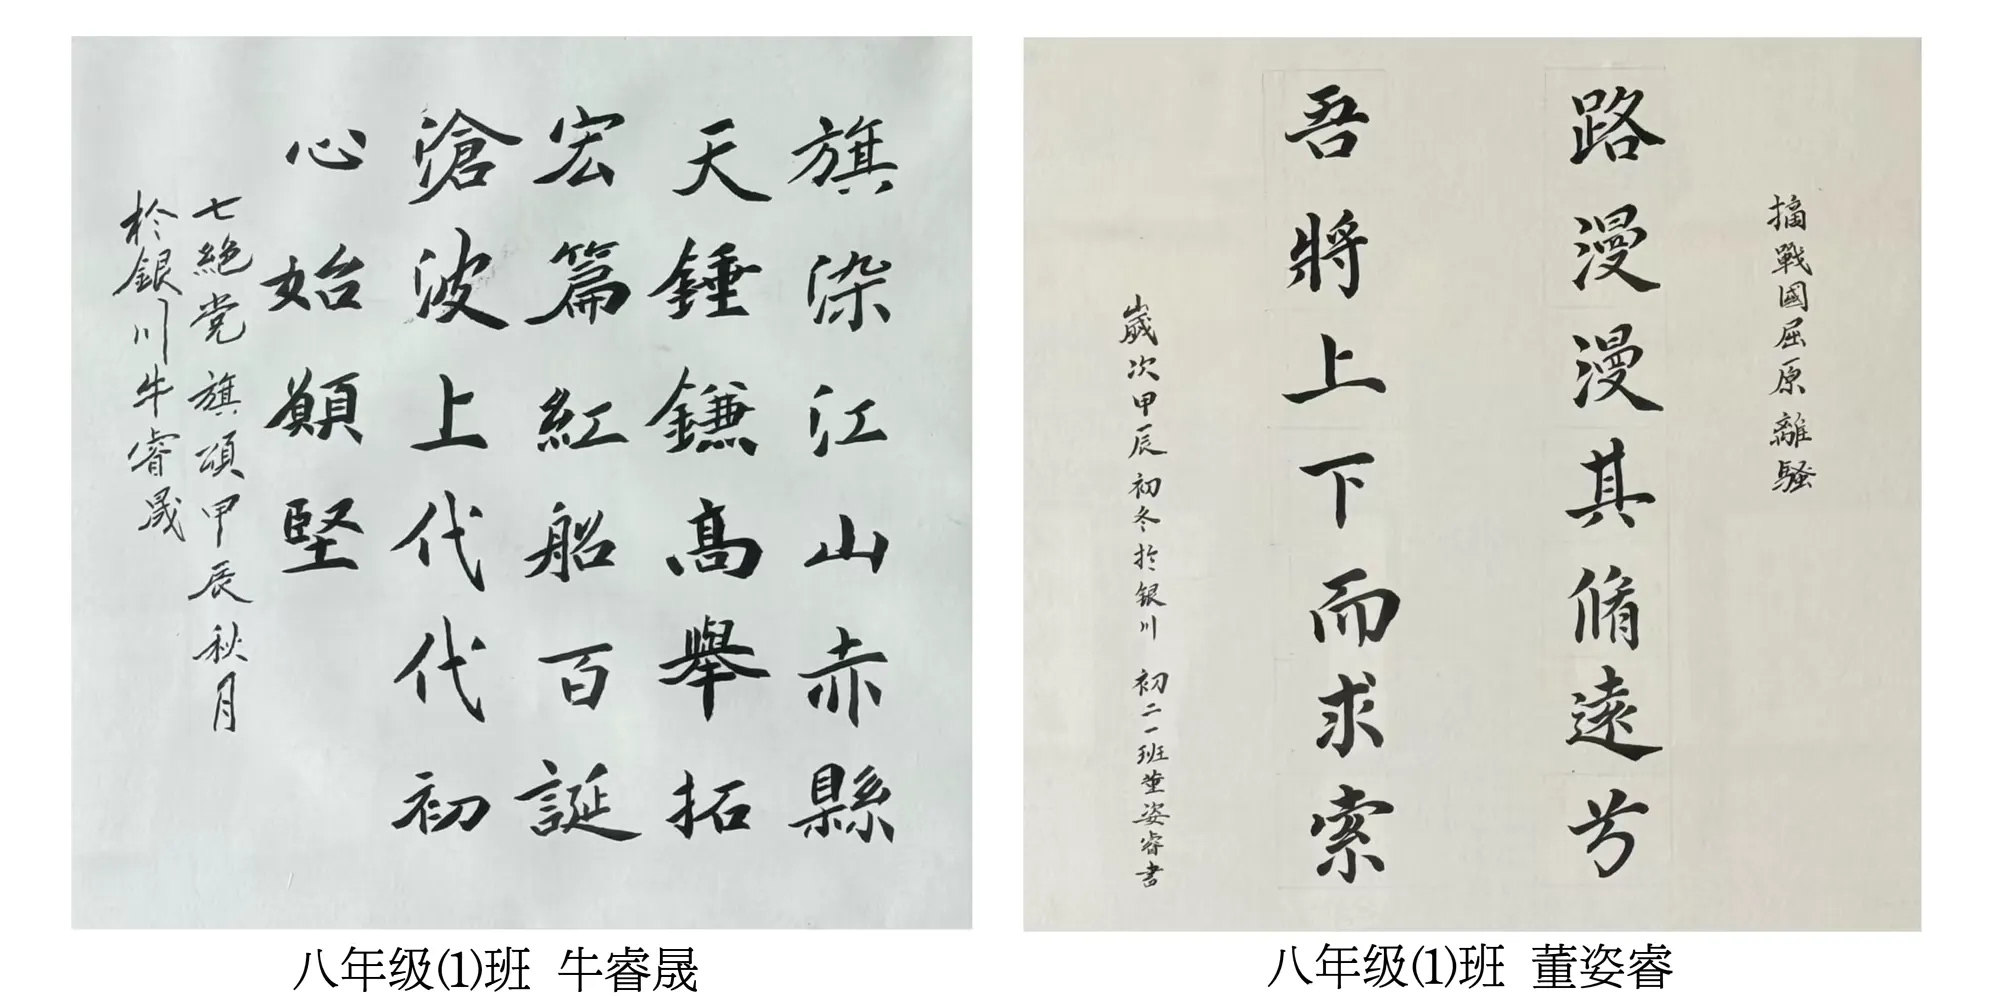 旗染江山赤縣
天錘鐮高舉拓
宏篇紅船百誕
滄波上代代初
心始願堅
七絕党旗頌甲辰秋月
於銀川牛睿晟
八年级(1)班 牛睿晟
摘戰國屈原離騷
路漫漫其脩遠兮
吾將上下而求索
歲次甲辰初冬於銀川 初二一班董姿睿書
八年级(1)班 董姿睿